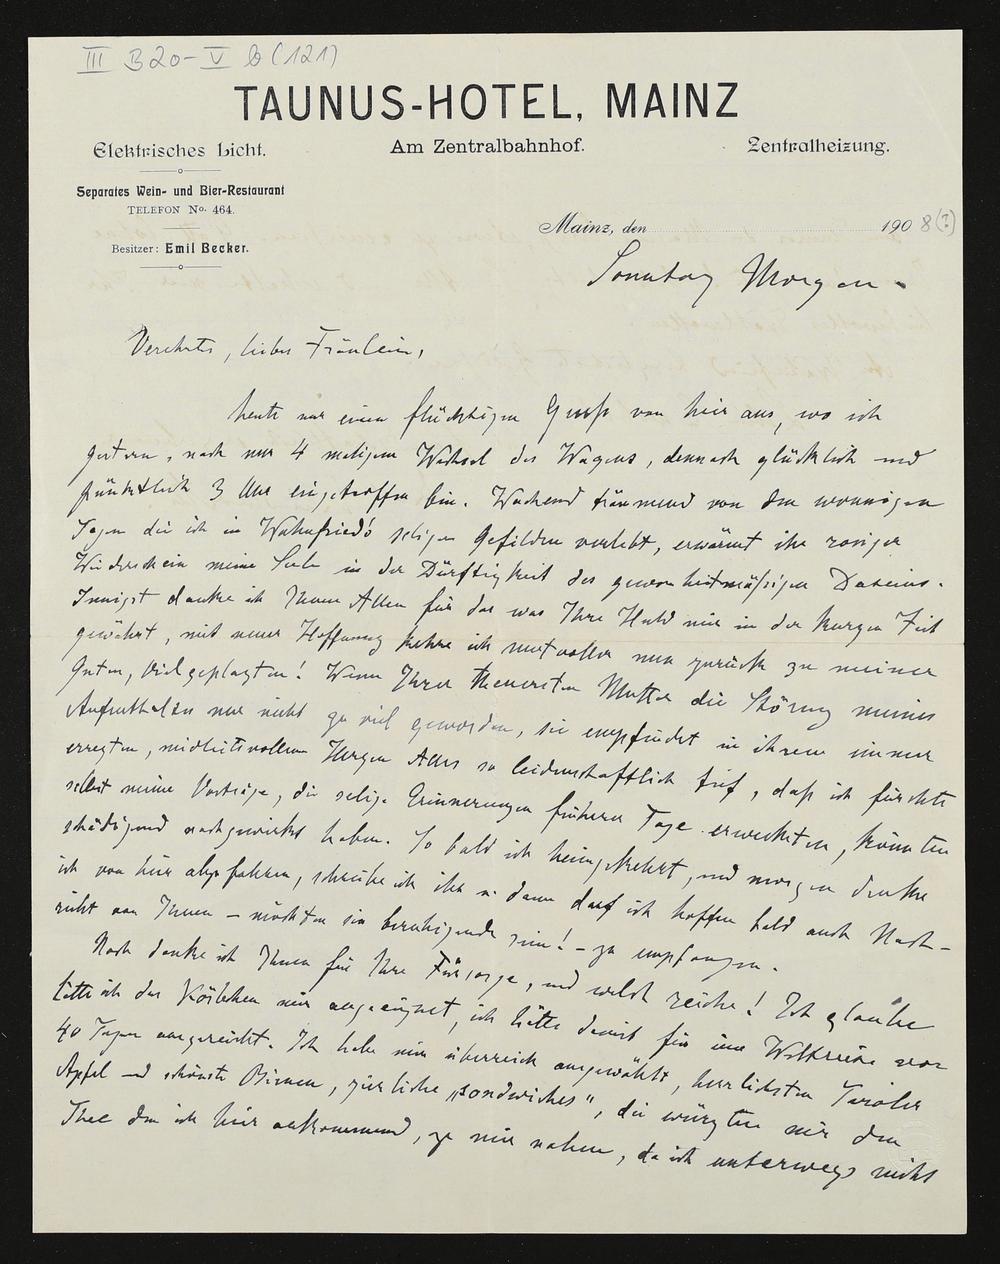 III B 20-V b (121)
TAUNUS-HOTEL, MAINZ
Elektrisches Licht.
Am Zentralbahnhof.
Zentralheizung.
Separates Wein- und Bier-Restaurant
TELEFON No. 464.
Besitzer: Emil Becker.
Mainz, den 190 8(?)
Sonntag Morgen.
Verehrtes, liebes Fräulein,
heute nur einen flüchtigen Gruß von hier aus, wo ich
gestern, nach nur 4 maligem Wechsel des Wagens, dennoch glücklich und
pünktlich 3 Uhr eingetroffen bin. Wachend träumend von den wonnigen
Tagen die ich in Wahnfried's seligen Gefilden verlebt, erwärmt ihr rosiger
Widerschein meine Seele in der Dürftigkeit des gewohnheitmäßigen Daseins.
Innigst danke ich Ihnen Allen für das was Ihre Huld mir in der kurzen Zeit
gewährt, mit neuer Hoffnung kehre ich mutvoller nun zurück zu meiner
Guten, Vielgeplagten! Wenn Ihrer theuersten Mutter die Störung meines
Aufenthaltes nur nicht zu viel geworden, sie empfindet in ihrem immer
erregten, mitleidsvollen Herzen Alles so leidenschaftlich tief, daß ich fürchte
selbst meine Vorträge, die selige Erinnerungen früherer Tage erweckten, könnten
schädigend nachgewirkt haben. So bald ich heimgekehrt, und morgen denke
ich von hier abzufahren, schreibe ich ihr u. dann darf ich hoffen bald auch Nach-
richt von Ihnen – möchten sie beruhigende sein! – zu empfangen.
Noch danke ich Ihnen für Ihre Fürsorge, und welch reiche! Ich glaube
hätte ich das Körbchen mir angeeignet, ich hätte damit für eine Weltreise von
40 Tagen ausgereicht. Ich habe mir überreich ausgewählt, herrlichsten Tiroler
Apfel und schönste Birnen, zierliche „sandwiches", die würzten mir den
Thee den ich hier ankommend, zu mir nahm, da ich unterwegs nicht